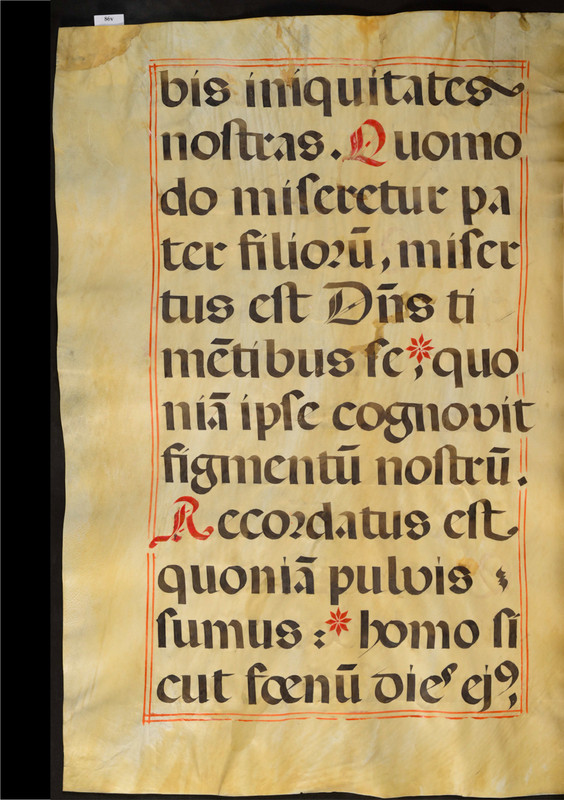 86v
bis iniquitates
noſtras. Quomo
do miſeretur pa
ter filiorū, miſer
tus eſt Dn̄s ti
mētibus ſe * ; quo
niā ipſe cognovit
figmentū noſtrū.
Recordatus eſt
quoniā pulvis
ſumus : * homo ſi
cut fœnū dieſ ejꝯ,